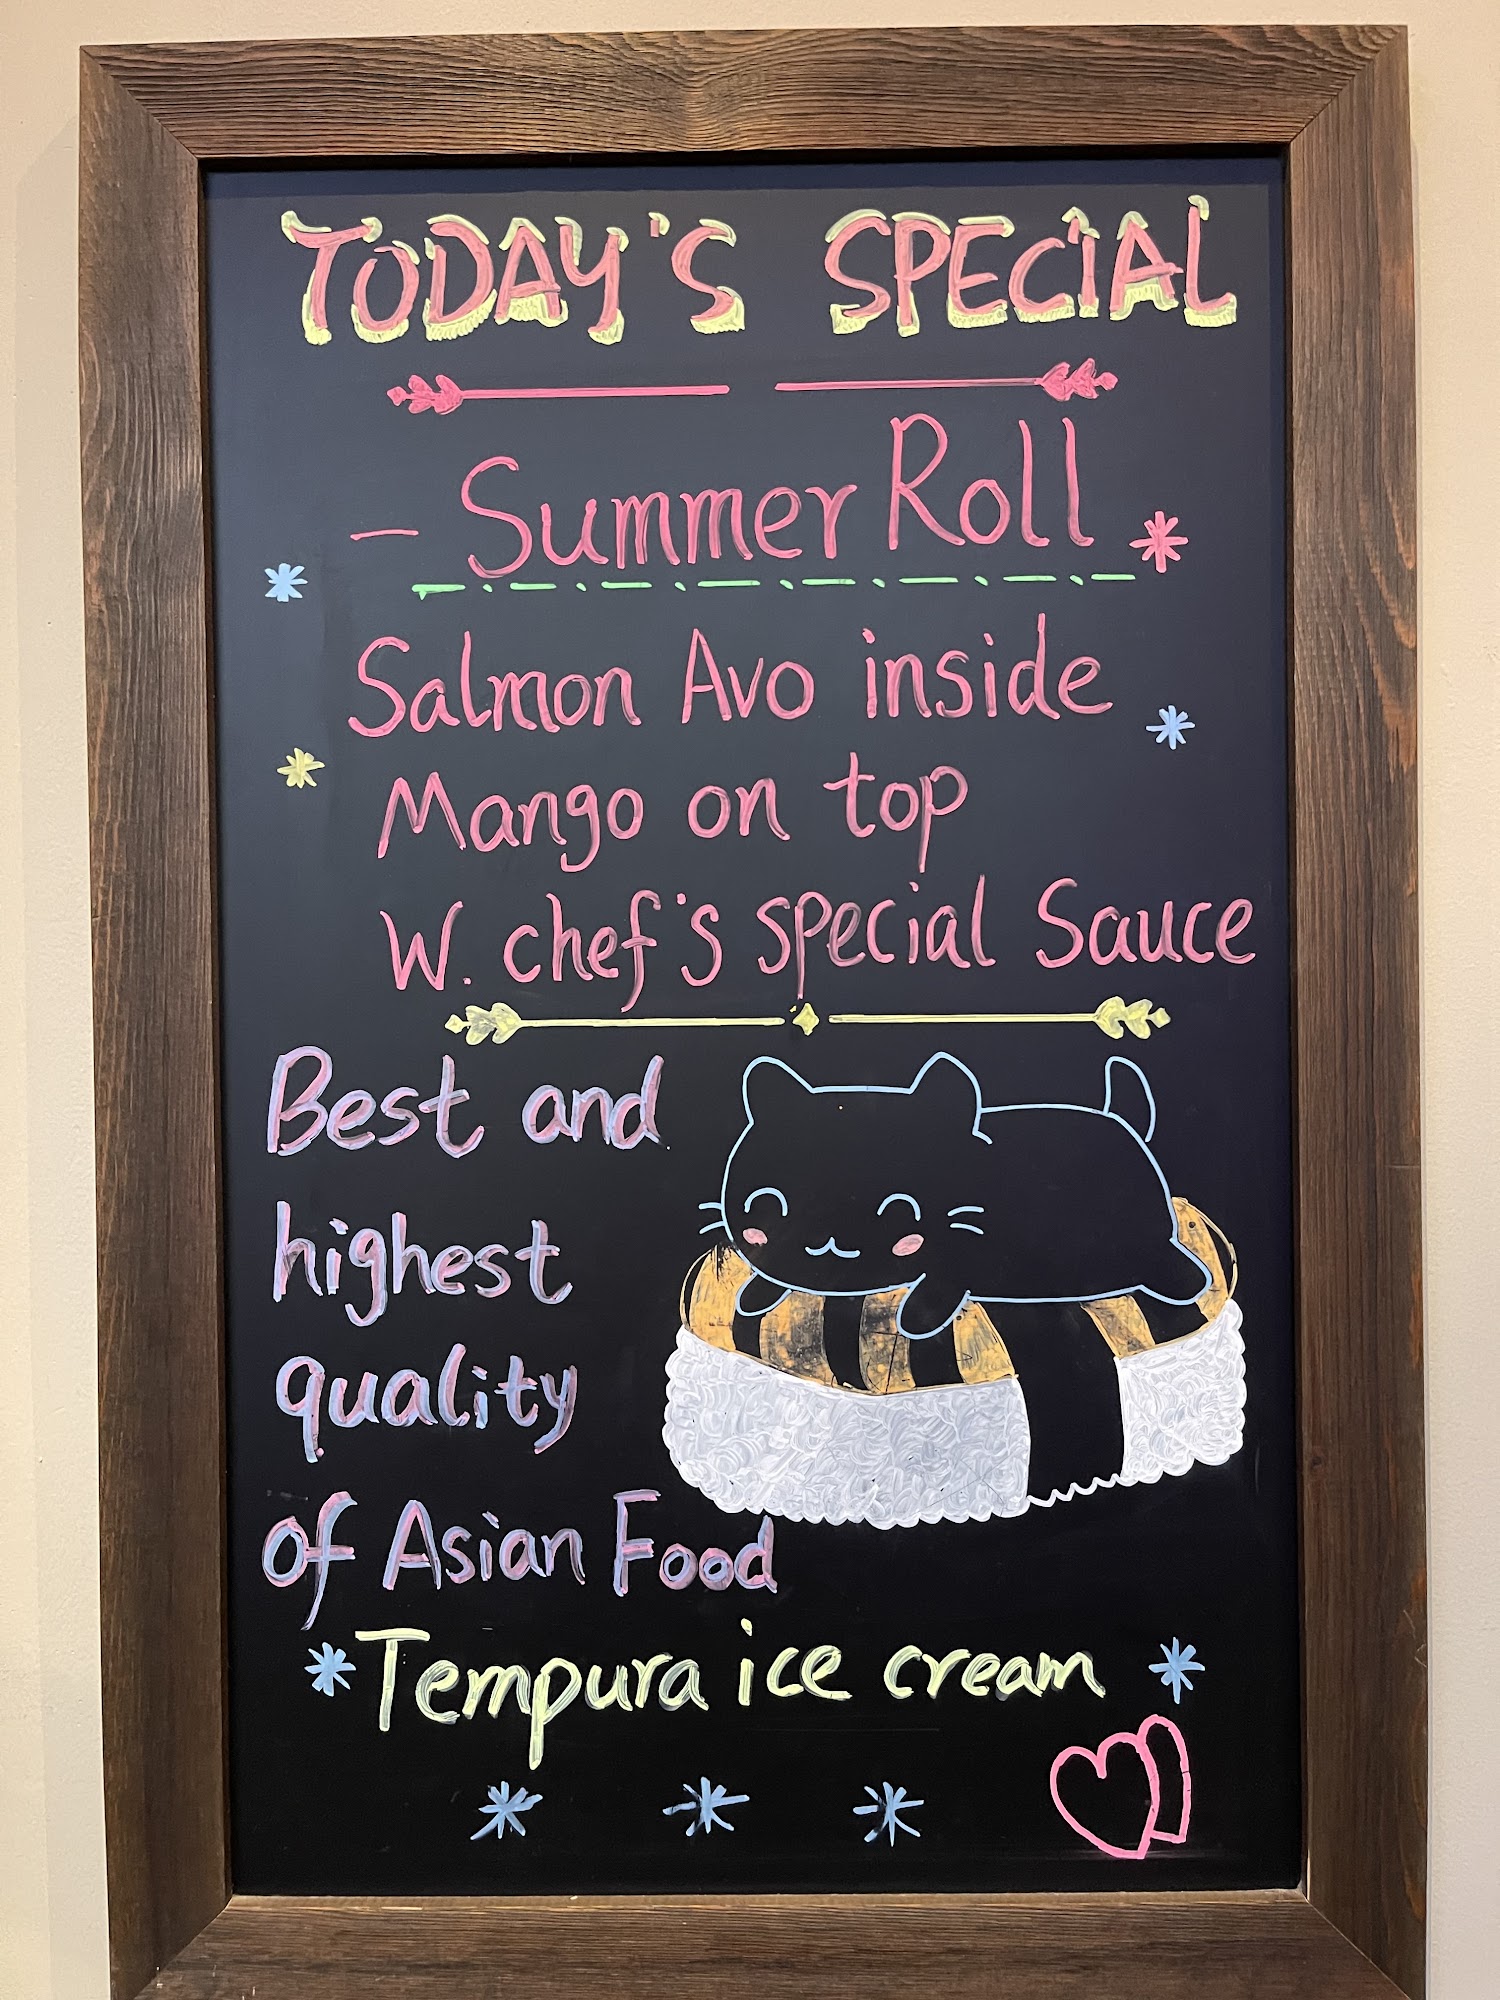 TODAY'S SPECIAL
- Summer Roll
Salmon Avo inside
Mango on top
W. chef's special Sauce
Best and
highest
quality
of Asian Food
Tempura ice cream